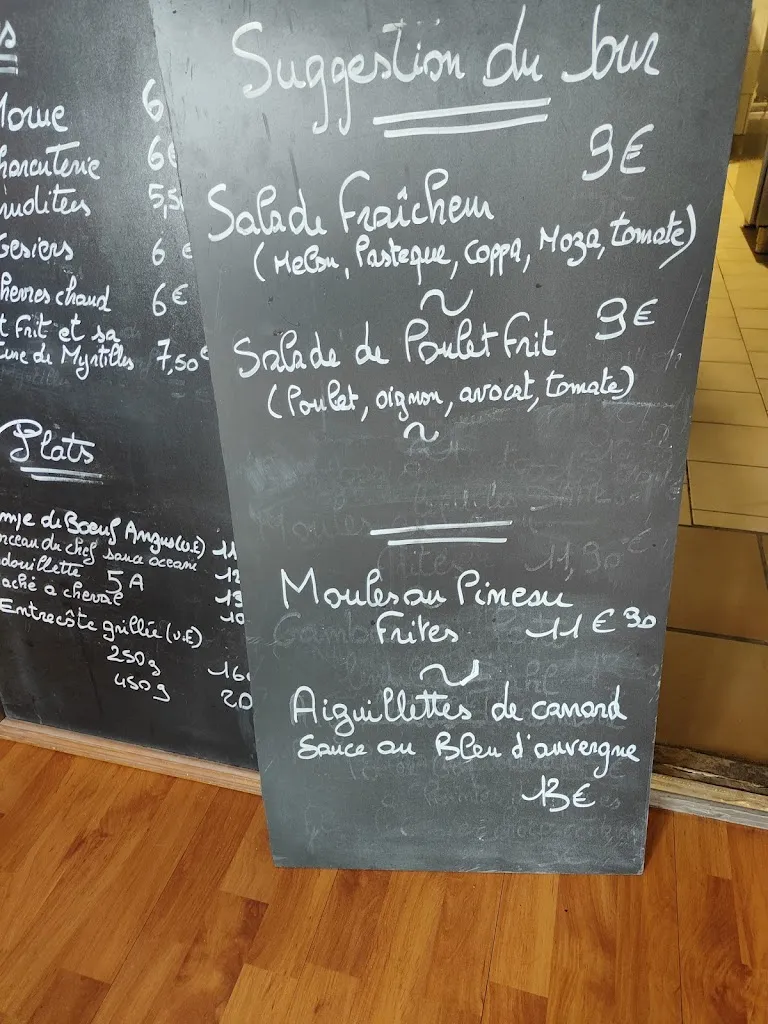 s
Morue 6
harcuterie 6€
ruditers 5,5
Gesiers 6 €
hevres chaud 6€
t frit et sa
de Myrtilles 7,50€
Plats
de Boeuf Angus (U.E) 11
rceau du chef sauce oceane 12
douillette 5A 13
aché a cheval 10
Entrecôte grillée (U.E)
250g 16
450g 20
Suggestion du Jour
9€
Salade Fraîcheur
(Melon, Pasteque, Coppa, Moza, tomate)
~
9€
Salade de Poulet Frit
(Poulet, oignon, avocat, tomate)
~
Moules au Pineau
Frites 11 € 90
~
Aiguillettes de canard
Sauce au Bleu d'auvergne
13€